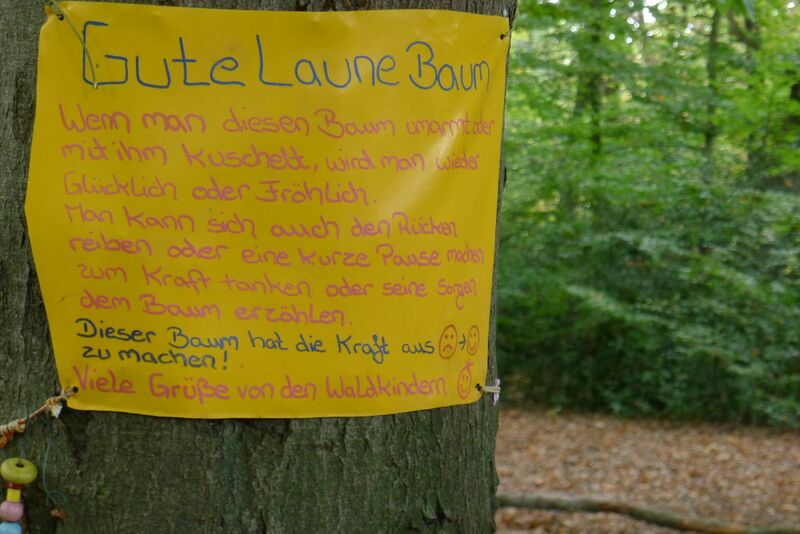 Gute Laune Baum
Wenn man diesen Baum umarmt oder
mit ihm kuschelt, wird man wieder
Glücklich oder Fröhlich.
Man kann sich auch den Rücken
reiben oder eine kurze Pause machen
zum Kraft tanken oder seine Sorgen
dem Baum erzählen.
Dieser Baum hat die Kraft aus ☹→☺
zu machen!
Viele Grüße von den Waldkindern ☺